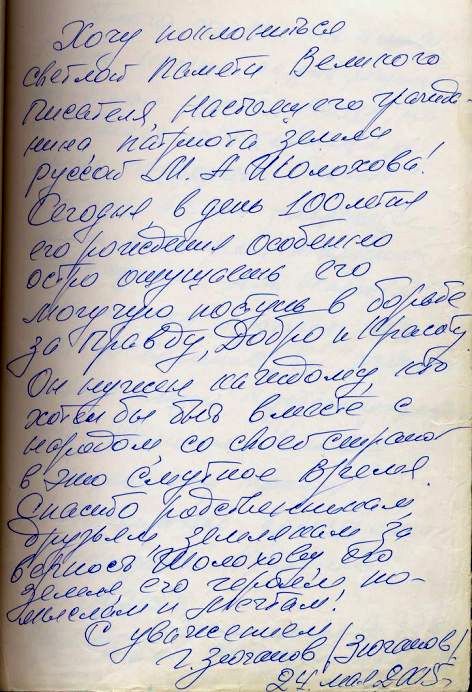 Хочу поклониться
светлой Памяти Великого
писателя, Настоящего гражда-
нина патриота земли
русской М. А Шолохова!
Сегодня, в день 100летия
его рождения особенно
остро ощущаешь его
могучую поступь в борьбе
за Правду, Добро и Красоту
Он нужен каждому, кто
хотел бы быть вместе с
народом, со своей страной
в это Смутное Время.
Спасибо родственникам,
друзьям, землякам за
верность Шолохову, его
земле, его героям, по-
мыслам и мечтам!
С уважением
Г. Зюганов /Зюганов/
24 мая 2005г